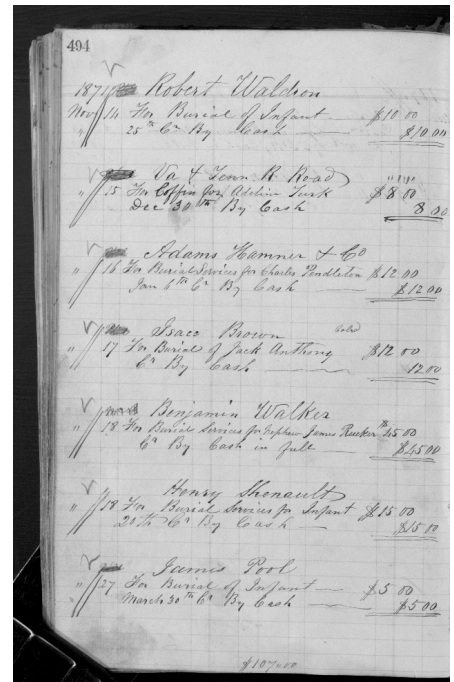 494
1871 Robert Waldron
Nov 14 For Burial of Infant $10 00
" 25th Cr By Cash $10.00
Va & Tenn R. Road
" 15 For Coffin for Adeline Turk $8 00
Dec 30th By Cash 8 00
Adams Hamner & Co
" 16 For Burial Services for Charles Pendleton $12 00
Jan 6th Cr By Cash $12 00
Isaac Brown
" 17 For Burial of Jack Anthony $12 00
Cr By Cash 12 00
Benjamin Walker
" 18 For Burial Services for Nephew James Rucker 45 00
Cr By Cash in full $45 00
Henry Shonault
" 18 For Burial Services for Infant $15 00
20th Cr By Cash $15 00
James Pool
" 27 For Burial of Infant $5 00
" March 30th Cr By Cash $5 00
$107.00